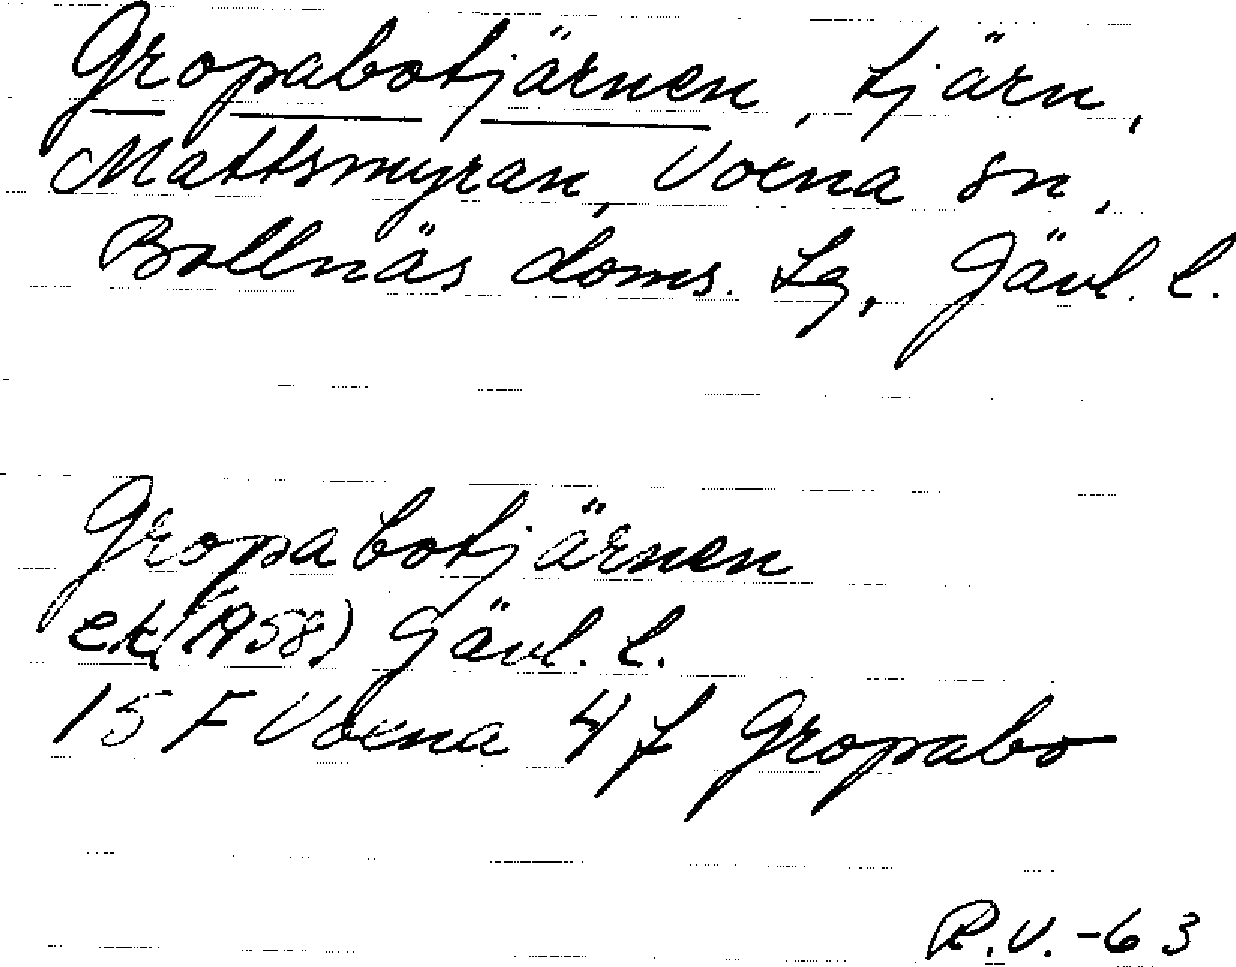 Gropabotjärnen, tjärn,
Mattsmyran, Voxna sn,
Bollnäs doms. Lg, Gävl. l.
Gropabotjärnen
ek (1958) Gävl. l.
15 F Voxna 4 f Gropabo
R.V. -63